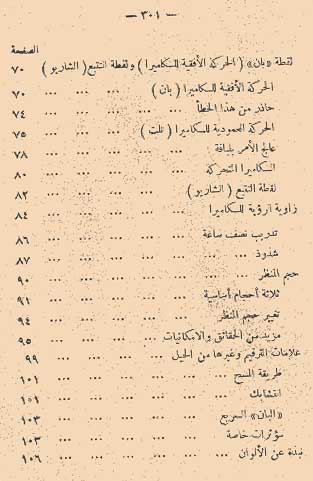 — ٣٠١ —
الصفحة
لقطة «بان» ( الحركة الأفقية للسكاميرا ) ولقطة التتبع ( الشاريو ) ٧٠
الحركة الأفقية للسكاميرا ( بان ) ... ... ... ٧٠
حاذر من هذا الخطأ ... ... ... ... ٧٤
الحركة العمودية للسكاميرا ( تلت ) ... ... ... ٧٥
عالج الأمر بلباقة ... ... ... ... ٧٨
السكاميرا المتحركة ... ... ... ... ٨٠
لقطة التتبع ( الشاريو ) ... ... ... ٨٢
زاوية الرؤية للسكاميرا ... ... ... ... ... ٨٤
تدريب نصف ساعة ... ... ... ... ٨٦
شذوذ ... ... ... ... ... ... ٨٧
حجم المنظر ... ... ... ... ... ... ٩٠
ثلاثة أحجام أساسية ... ... ... ... ٩١
تغيير حجم المنظر ... ... ... ... ٩٤
مزيد من الحقائق والامكانيات ... ... ... ٩٥
علامات الترقيم وغيرها من الحيل ... ... ... ... ٩٩
طريقة المسح ... ... ... ... ... ١٠١
التشابك ... ... ... ... ... ١٠١
«البان» السريع ... ... ... ... ... ١٠٣
مؤثرات خاصة ... ... ... ... ... ١٠٣
نبذة عن الألوان ... ... ... ... ... ... ١٠٦